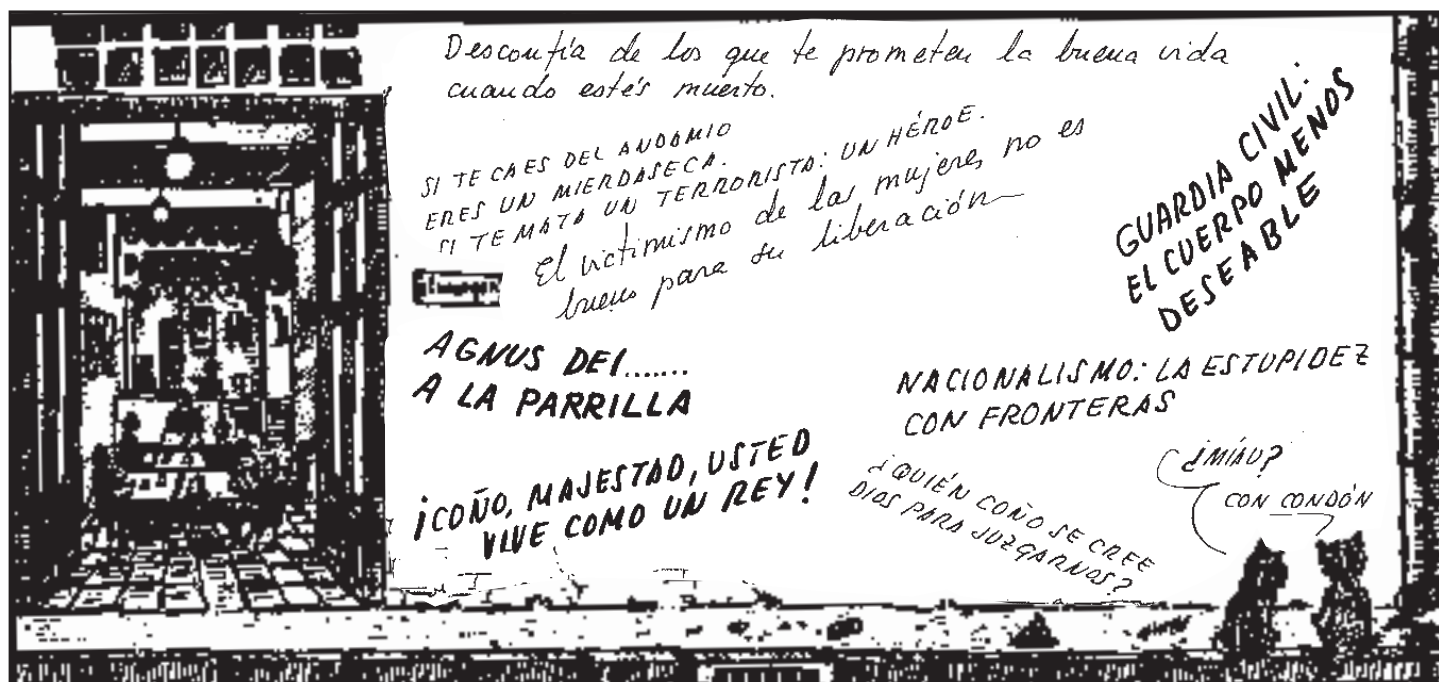 Desconfía de los que te prometen la buena vida
cuando estés muerto.
SI TE CAES DEL ANDAMIO
ERES UN MIERDASECA.
SI TE MATA UN TERRORISTA: UN HÉROE.
El victimismo de las mujeres no es
bueno para su liberación
GUARDIA CIVIL:
EL CUERPO MENOS
DESEABLE
AGNUS DEI.......
A LA PARRILLA
NACIONALISMO: LA ESTUPIDEZ
CON FRONTERAS
¡COÑO, MAJESTAD, USTED
VIVE COMO UN REY!
¿QUIÉN COÑO SE CREE
DIOS PARA JUZGARNOS?
¿MIAU?
CON CONDÓN